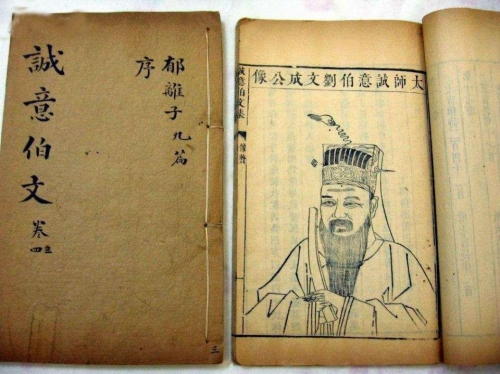 郁離子九篇
序
誠意伯文
卷
三
太師誠意伯劉文成公像
誠意伯文集
像贊